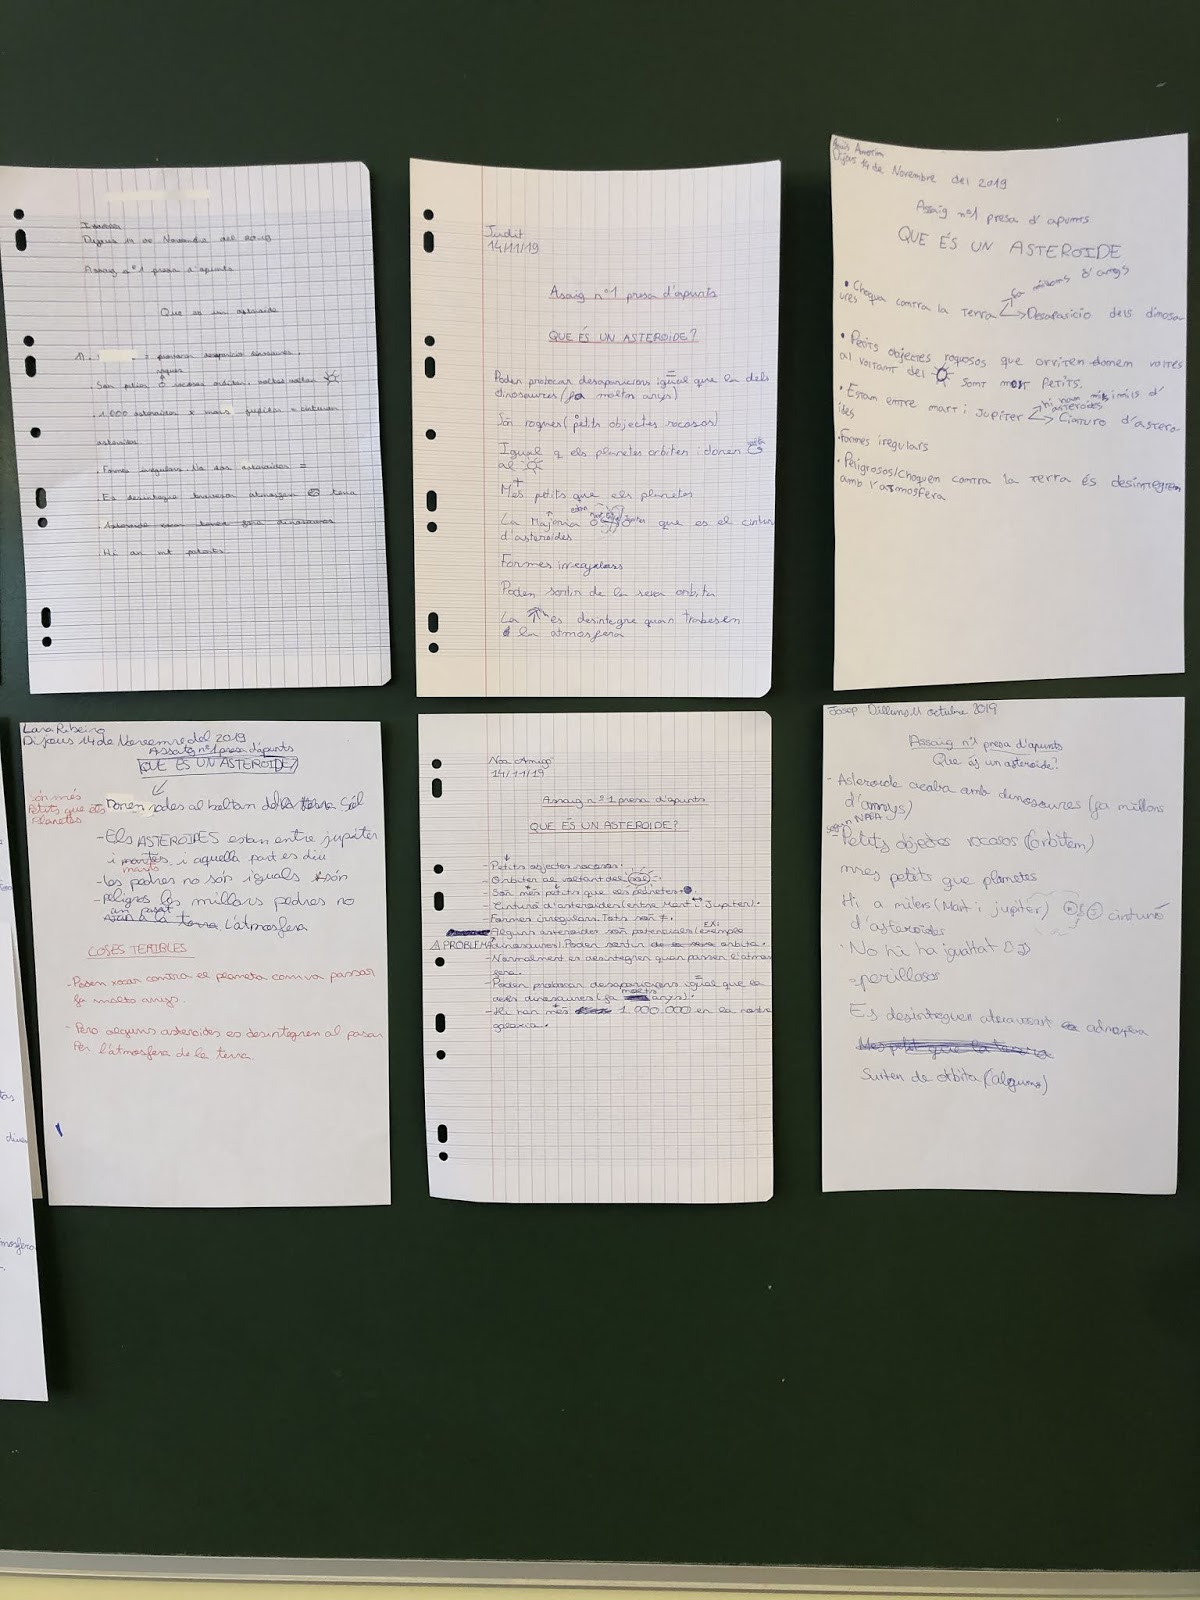 Dijous 14 de Novembre del 2019
Assaig nº1 presa d'apunts
Que es un asteroide
roques
Son petits rocosos orbiten. voltes voltan
1.000 asteroides x mart jupiter = cinturon
asteroides
.Formes irregulars. No dos asteroides =
.Es desintegren travessen atmosfera terra
.Asteroide xocar dinosaures
.Hi an mt
Judit
14/11/19
Asaig nº1 presa d'apunts
QUE ÉS UN ASTEROIDE?
Poden probocar desaparicions igual que la dels
dinosaures (fa moltos anys)
Són roques (petits objectes rocosos)
Igual q els planetes orbiten i donen
al
Més petits que els planetes
La Majoria estan mart jupiter que es el cinturo
d'asteroides
Formes irregulars
Poden sortir de la seva orbita
La es desintegre quan trabesen
la atmosfera
Anaïs Amorim
Dijous 14 de Novembre del 2019
Assaig nº1 presa d'apunts
QUE ÉS UN ASTEROIDE
fa millions d'anys
• Choqua contra la Terra → Desaparicio dels dinosa-
ures
• Petits objectes roquosos que orviten donem voltes
al voltant del sont molt petits.
hi han mils i mils d'
asteroides
• Estam entre mart i Jupiter → Cinturo d'astero-
ides
•Formes irregulars
• Peligrosos/choquem contra la terra és desintegren
amb l'atmosfera
Lara Ribeiro
Dijous 14 de Novembre del 2019
Assaig nº1 presa d'apunts
QUE ÉS UN ASTEROIDE?
són més
Petits que els
Planetes
Donen voltes al boltan del Sól
-Els ASTEROIDES estan entre jupiter
i martes, i aquella part es diu
marts
-les pedres no són iguals són
-peligros les millars pedres no
an pasat
van a la terra. L'atmosfera
COSES TERIBLES
-Poden xocar contra el planeta com va passar
fa malto anys.
-Pero alguns asteroides es desintegren al pasar
Per l'atmosfera de la terra.
Noa Amigo
14/11/19
Assaig nº1 presa d'apunts
QUE ÉS UN ASTEROIDE?
-Petits objectes rocosos.
-Orbiter al voltant del (sol).
-Són més petits que els planetes.
-Cinturó d'asteroides (entre Mart i Jupiter).
-Formes irregulars. Tots són ≠.
EXI
Alguns asteroides són potencials (exemple
⚠ PROBLEMA dinosaures). Poden sortir de la seva orbita.
-Normalment es desintegren quan passen l'atmos
fera.
-Poden probocar desaparicions igual que la
dels dinosaures (fa moltes anys).
-Hi han més 1.000.000 en la nostra
galaxia.
Josep Dilluns 11 octubre 2019
Assaig nº1 presa d'apunts
Que és un asteroide?
- Asteroide acaba amb dinosaures (fa millons
d'annys)
segon NASA
-Petits objectes rocosos (orbitem)
mes petits que planetes
Hi a milers (Mart i jupitér) cinturó
d'asteroides
- No hi ha igualtat
-perillosos
Es desinteguen atravesant atmosfera
Mes petit que la terra
Surten de orbita (alguns)